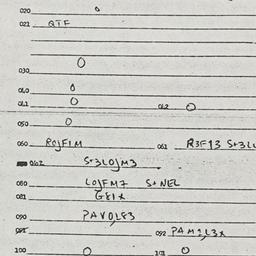 020 0
021 QTF
0
030
040 0
041 0 042 0
050 0
060 ROJFIM 061 R3F13
062 S+3LOJM3
080 LOJFM7 S+NEL
081 G81X
090 PAVOL83
091 092 PAM2L3X
100 0 101 0